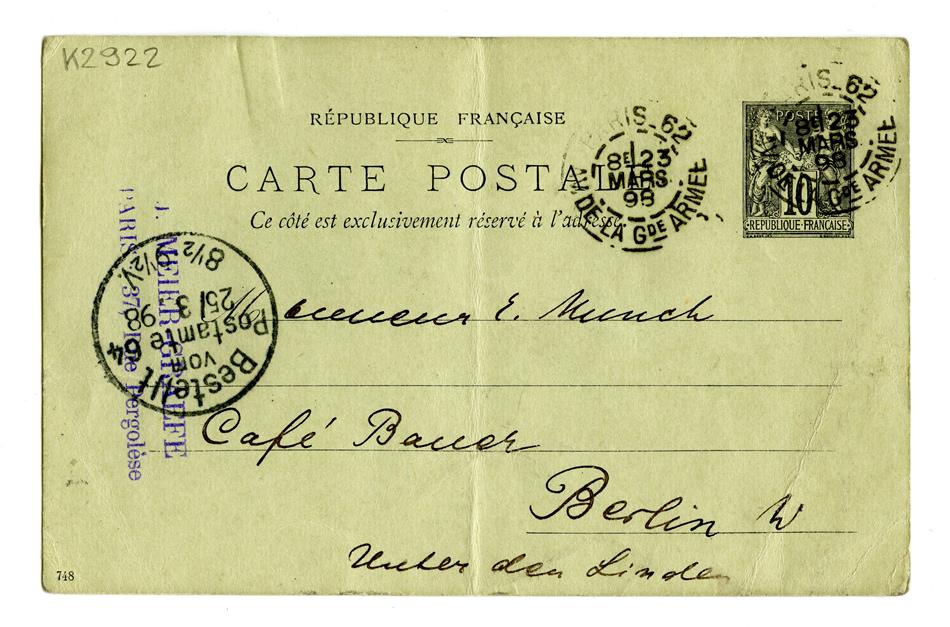 K2922
RÉPUBLIQUE FRANÇAISE
CARTE POSTALE
Ce côté est exclusivement réservé à l'adresse.
PARIS 62
8E 23
MARS
98
AV. DE LA GDE ARMÉE
PARIS 62
8E 23
MARS
98
GDE ARMÉE
POSTES
10
RÉPUBLIQUE FRANÇAISE
J. MEIER-GRAEFE
PARIS, 37, Rue Pergolèse
Bestellt
vom
Postamte 64
25/3 98
8½-9½V.
Monsieur E. Munch
Café Bauer
Berlin W
Unter den Linden
748